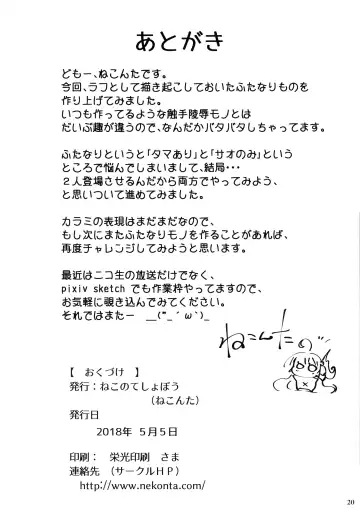 あとがき
どもー、ねこんたです。
今回、ラフとして描き起こしておいたふたなりものを
作り上げてみました。
いつも作ってるような触手陵辱モノとは
だいぶ趣が違うので、なんだかバタバタしちゃってます。
ふたなりというと「タマあり」と「サオのみ」という
ところで悩んでしまいまして、結局・・・
２人登場させるんだから両方でやってみよう、
と思いついて進めてみました。
カラミの表現はまだまだなので、
もし次にまたふたなりモノを作ることがあれば、
再度チャレンジしてみようと思います。
最近はニコ生の放送だけでなく、
pixiv sketch でも作業枠やってますので、
お気軽に覗き込んでみてください。
それではまたー　__(“_´ω`)_
ねこんたの
【　おくづけ　】
発行：ねこのてしょぼう
（ねこんた）
発行日
2018年 ５月５日
印刷：　栄光印刷　さま
連絡先　（サークルＨＰ）
http://www.nekonta.com/
20